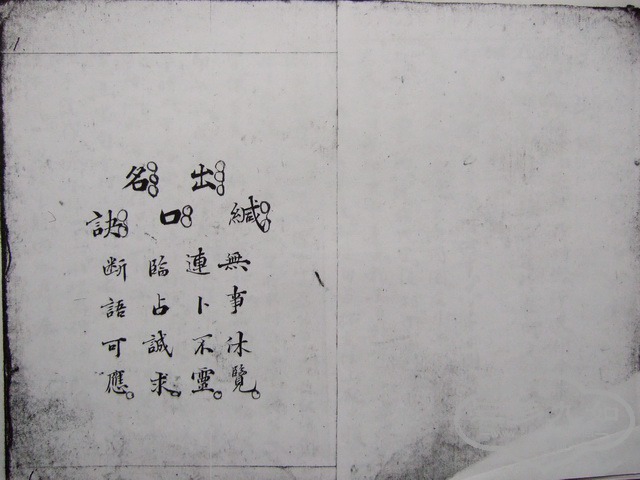 出名
緘口訣
無事休覽。
連卜不靈。
臨占誠求。
断語可應。